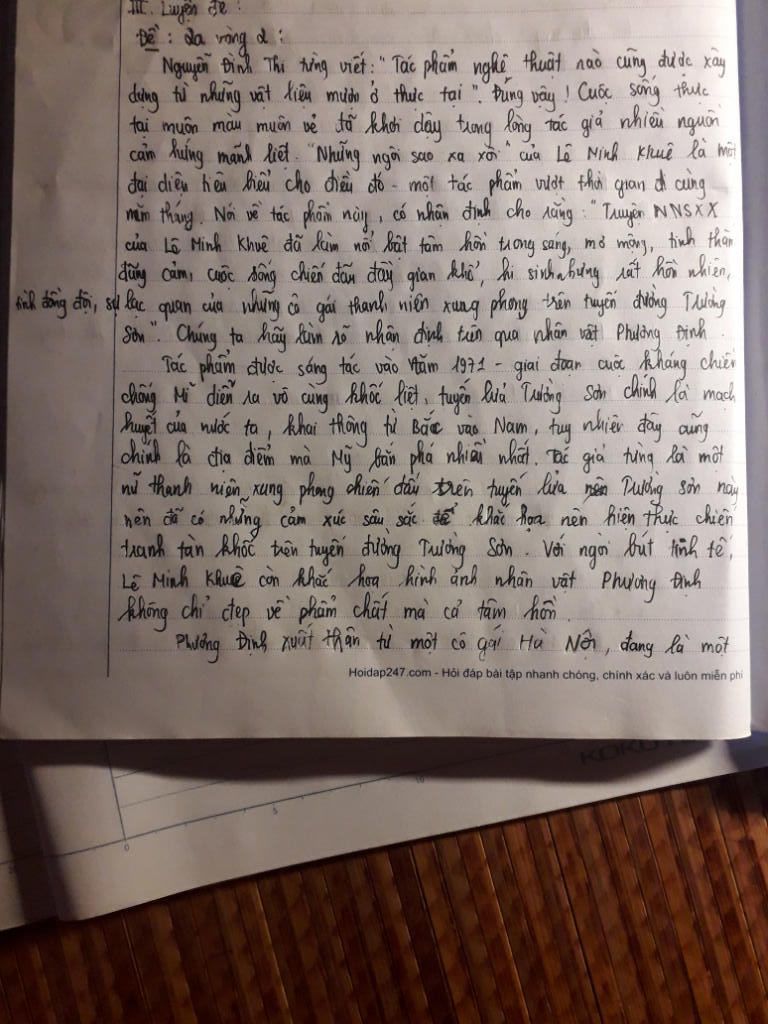 III. Luyện đề :
Đề : 2a vòng 2 :
Nguyễn Đình Thi từng viết : " Tác phẩm nghệ thuật nào cũng được xây
dựng từ những vật liệu mượn ở thực tại ". Đúng vậy ! Cuộc sống thực
tại muôn màu muôn vẻ đã khơi dậy trong lòng tác giả nhiều nguồn
cảm hứng mãnh liệt. "Những ngôi sao xa xôi" của Lê Minh Khuê là một
đại diện tiêu biểu cho điều đó - một tác phẩm vượt thời gian đi cùng
năm tháng. Nói về tác phẩm này, có nhận định cho rằng : " Truyện NNSXX
của Lê Minh Khuê đã làm nổi bật tâm hồn trong sáng, mơ mộng, tinh thần
dũng cảm, cuộc sống chiến đấu đầy gian khổ, hi sinh nhưng rất hồn nhiên,
tình đồng đội, sự lạc quan của những cô gái thanh niên xung phong trên tuyến đường Trường
Sơn ". Chúng ta hãy làm rõ nhận định trên qua nhân vật Phương Định.
Tác phẩm được sáng tác vào năm 1971 - giai đoạn cuộc kháng chiến
chống Mĩ diễn ra vô cùng khốc liệt, tuyến lửa Trường Sơn chính là mạch
huyết của nước ta, khai thông từ Bắc vào Nam, tuy nhiên đây cũng
chính là địa điểm mà Mỹ bắn phá nhiều nhất. Tác giả từng là một
nữ thanh niên xung phong chiến đấu trên tuyến lửa Trường Sơn này
nên đã có những cảm xúc sâu sắc để khắc họa nên hiện thực chiến
tranh tàn khốc trên tuyến đường Trường Sơn. Với ngòi bút tinh tế,
Lê Minh Khuê còn khắc họa hình ảnh nhân vật Phương Định
không chỉ đẹp về phẩm chất mà cả tâm hồn.
Phương Định xuất thân từ một cô gái Hà Nội, đang là một
Hoidap247.com - Hỏi đáp bài tập nhanh chóng, chính xác và luôn miễn phí
0
5
10